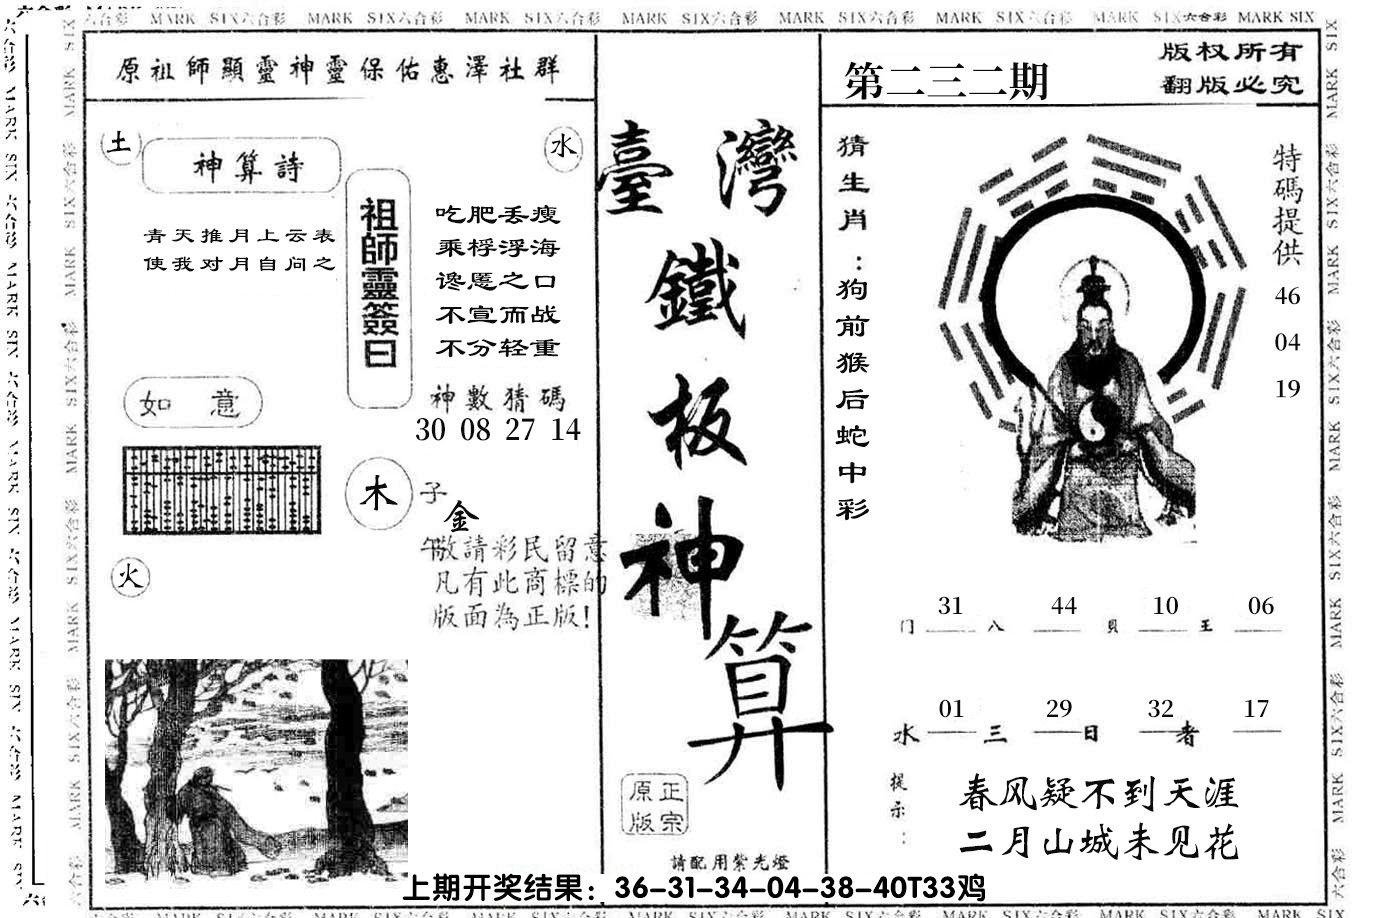 六合彩 MARK SIX六合彩 MARK SIX六合彩 MARK SIX六合彩 MARK SIX六合彩 MARK SIX六合彩 MARK SIX六合彩 MARK SIX六合彩 MARK SIX
原祖師顯靈神靈保佑惠澤社群
土
神算詩
水
青天推月上云表
使我对月自问之
祖師靈簽曰
吃肥丢瘦
乘桴浮海
谗慝之口
不宣而战
不分轻重
神數猜碼
30 08 27 14
如意
木
子
金
午
敬請彩民留意
凡有此商標的
版面為正版!
火
臺灣
鐵板神算
正宗
原版
請配用紫光燈
第二三二期
版权所有
翻版必究
猜生肖:狗前猴后蛇中彩
特碼提供
46
04
19
31 44 10 06
门 八 貝 王
01 29 32 17
水 三 日 者
提示:
春风疑不到天涯
二月山城未见花
上期开奖结果：36-31-34-04-38-40T33鸡